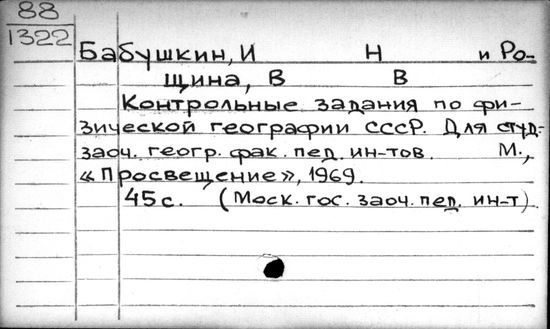 88
1322
Бабушкин, И Н и Ро-
щина, В В
Контрольные задания по фи-
зической географии СССР. Для студ-
заоч. геогр. фак. пед. ин-тов. М.,
«Просвещение», 1969.
45 с. (Моск. гос. заоч. пед. ин-т).